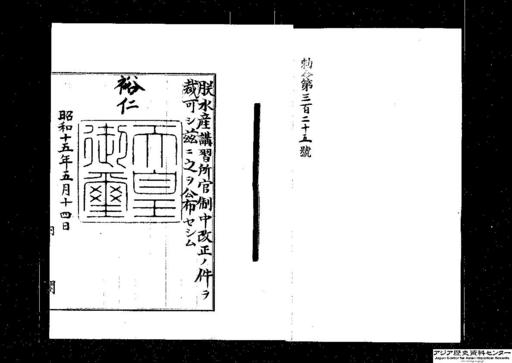 勅令第三百二十五號
朕水産講習所官制中改正ノ件ヲ
裁可シ茲ニ之ヲ公布セシム
裕仁
天皇
御璽
昭和十五年五月十四日
内閣
アジア歴史資料センター
Japan Center for Asian Historical Records